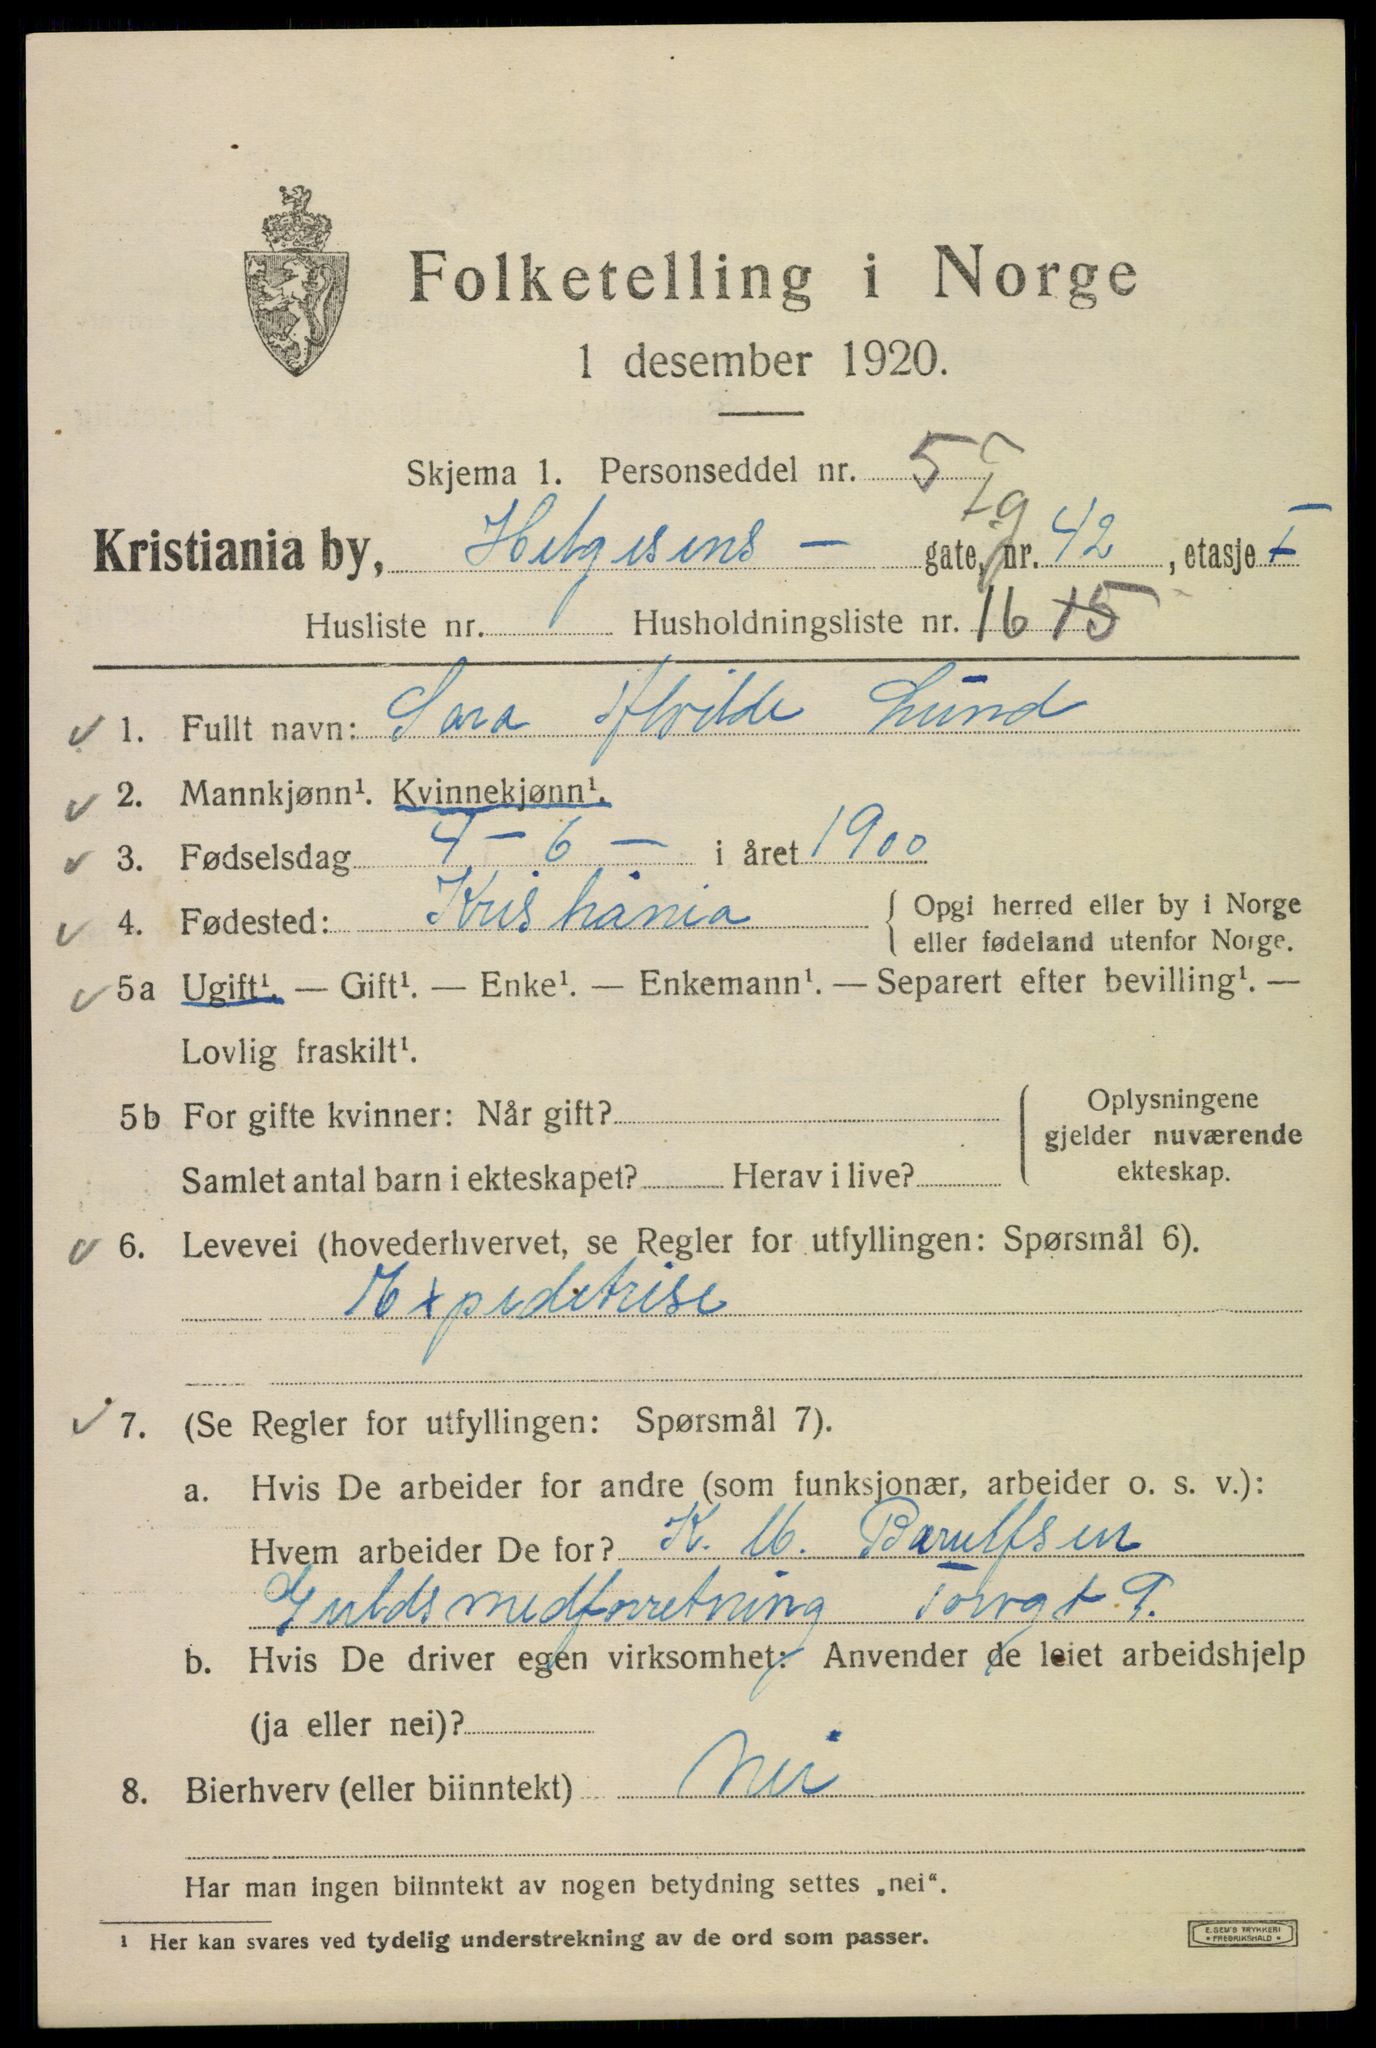 Folketelling i Norge
1 desember 1920.
Skjema 1. Personseddel nr. 5
Kristiania by, Helgesens - gate, nr. 42, etasje I
Husliste nr. Husholdningsliste nr. 16 15
1. Fullt navn: Sara Alvilde Lund
2. Mannkjønn¹. Kvinnekjønn¹.
3. Fødselsdag 4 - 6 - i året 1900
4. Fødested: Kristiania { Opgi herred eller by i Norge
eller fødeland utenfor Norge.
5a Ugift¹. — Gift¹. — Enke¹. — Enkemann¹. — Separert efter bevilling¹. —
Lovlig fraskilt¹.
5b For gifte kvinner: Når gift?
Samlet antal barn i ekteskapet? Herav i live?
{ Oplysningene
gjelder nuværende
ekteskap.
6. Levevei (hovederhvervet, se Regler for utfyllingen: Spørsmål 6).
Expeditrise
7. (Se Regler for utfyllingen: Spørsmål 7).
a. Hvis De arbeider for andre (som funksjonær, arbeider o. s. v.):
Hvem arbeider De for? K. M. Barulfsen
Guldsmedforretning Torvgt 9.
b. Hvis De driver egen virksomhet: Anvender de leiet arbeidshjelp
(ja eller nei)?
8. Bierhverv (eller biinntekt) Nei
Har man ingen biinntekt av nogen betydning settes „nei“.
¹ Her kan svares ved tydelig understrekning av de ord som passer.
E. SEM'S TRYKKERI
• FREDRIKSHALD •